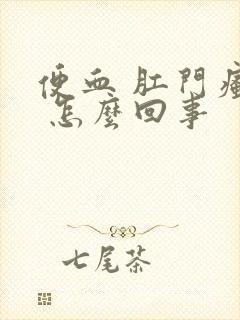 便血 肛門
怎麼回事
七尾茶